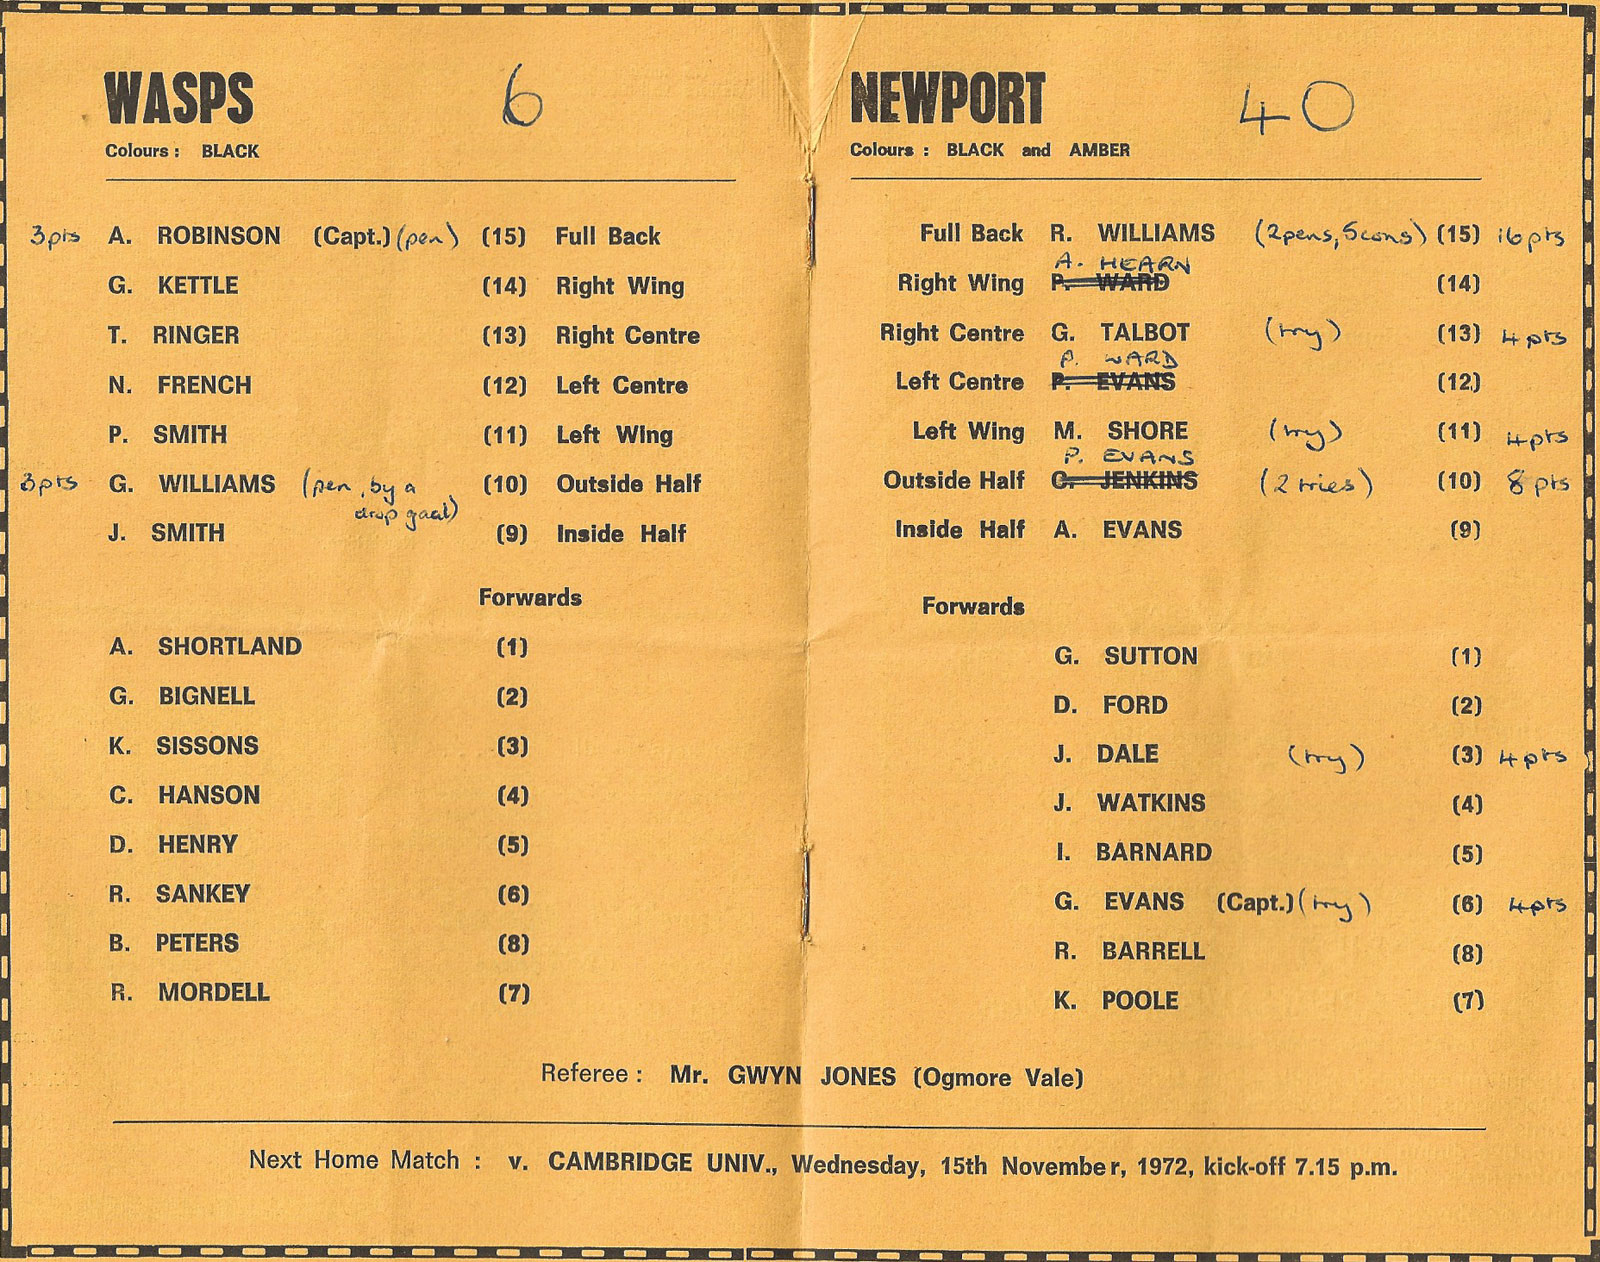 WASPS 6
Colours : BLACK
3pts A. ROBINSON (Capt.) (pen) (15) Full Back
G. KETTLE (14) Right Wing
T. RINGER (13) Right Centre
N. FRENCH (12) Left Centre
P. SMITH (11) Left Wing
3pts G. WILLIAMS (pen, by a (10) Outside Half
drop goal)
J. SMITH (9) Inside Half
Forwards
A. SHORTLAND (1)
G. BIGNELL (2)
K. SISSONS (3)
C. HANSON (4)
D. HENRY (5)
R. SANKEY (6)
B. PETERS (8)
R. MORDELL (7)
NEWPORT 40
Colours : BLACK and AMBER
Full Back R. WILLIAMS (2pens, 5cons) (15) 16pts
A. HEARN
Right Wing P. WARD (14)
Right Centre G. TALBOT (try) (13) 4pts
P. WARD
Left Centre P. EVANS (12)
Left Wing M. SHORE (try) (11) 4pts
P. EVANS
Outside Half C. JENKINS (2 tries) (10) 8pts
Inside Half A. EVANS (9)
Forwards
G. SUTTON (1)
D. FORD (2)
J. DALE (try) (3) 4pts
J. WATKINS (4)
I. BARNARD (5)
G. EVANS (Capt.) (try) (6) 4pts
R. BARRELL (8)
K. POOLE (7)
Referee : Mr. GWYN JONES (Ogmore Vale)
Next Home Match : v. CAMBRIDGE UNIV., Wednesday, 15th November, 1972, kick-off 7.15 p.m.